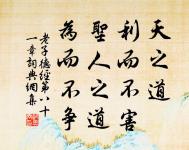 天之道
利而不害
聖人之道
為而不争
老子德經第八十
一章詞典網集